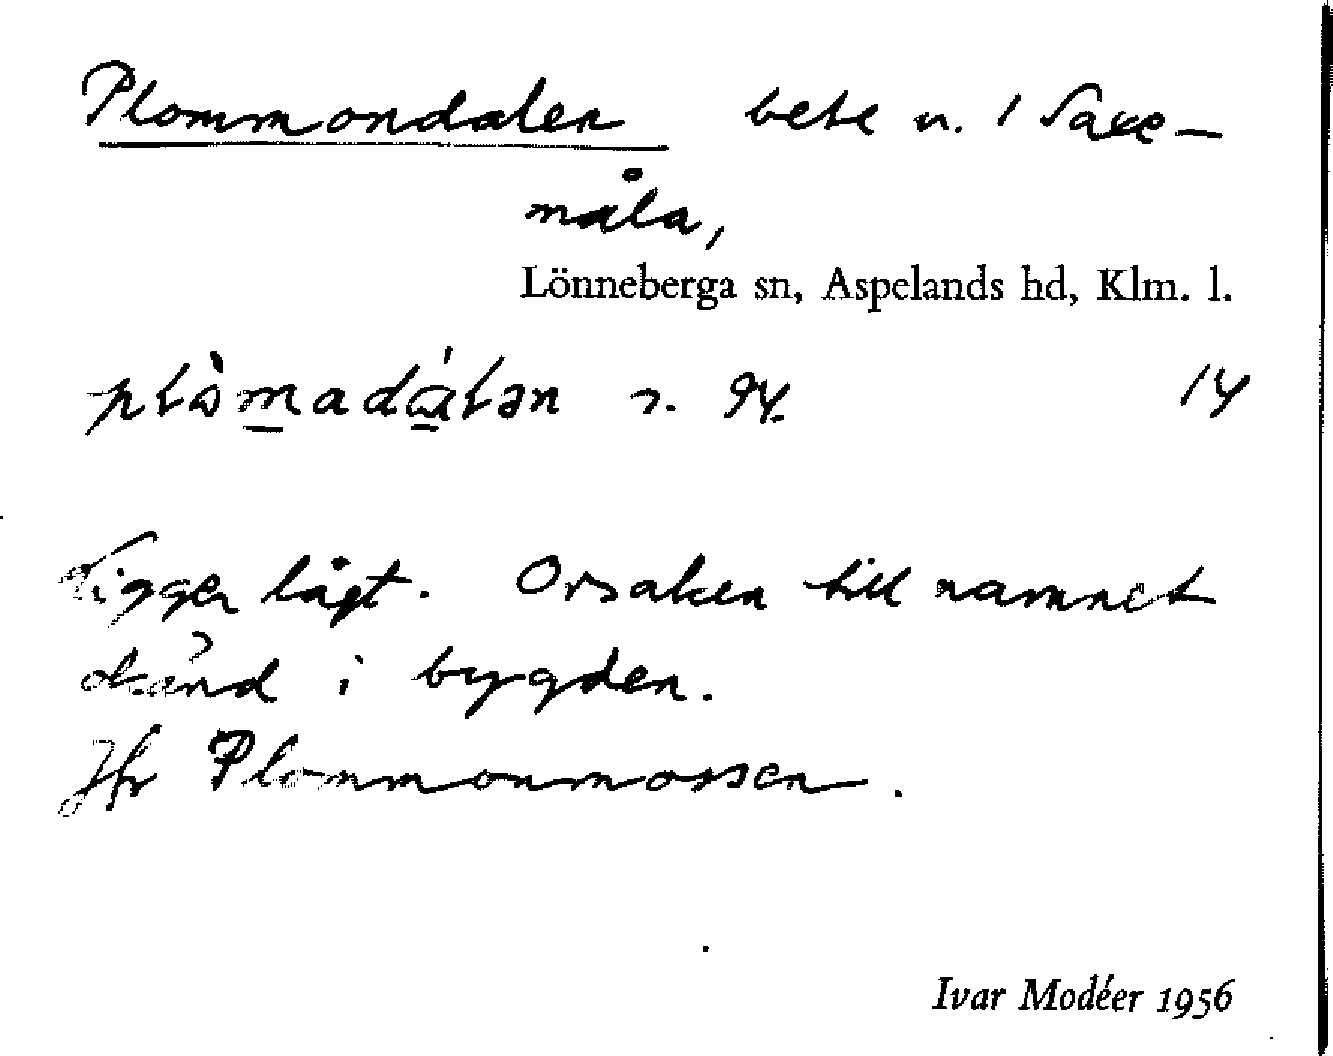 Plommondalen bete n. 1 Saxe-
måla,
Lönneberga sn, Aspelands hd, Klm. l.
14
Ligger lågt. Orsaken till namnet
okänd i bygden.
Jfr Plommonmossen.
Ivar Modéer 1956